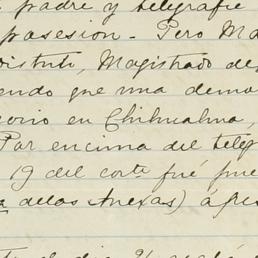 padre y telegrafie
posesion. Pero Ma
Distrito, Magistrado de
endo que una dema
orio en Chihuahua,
Por encima del telég
19 del corte fué pue
a delas Anexas) á pes